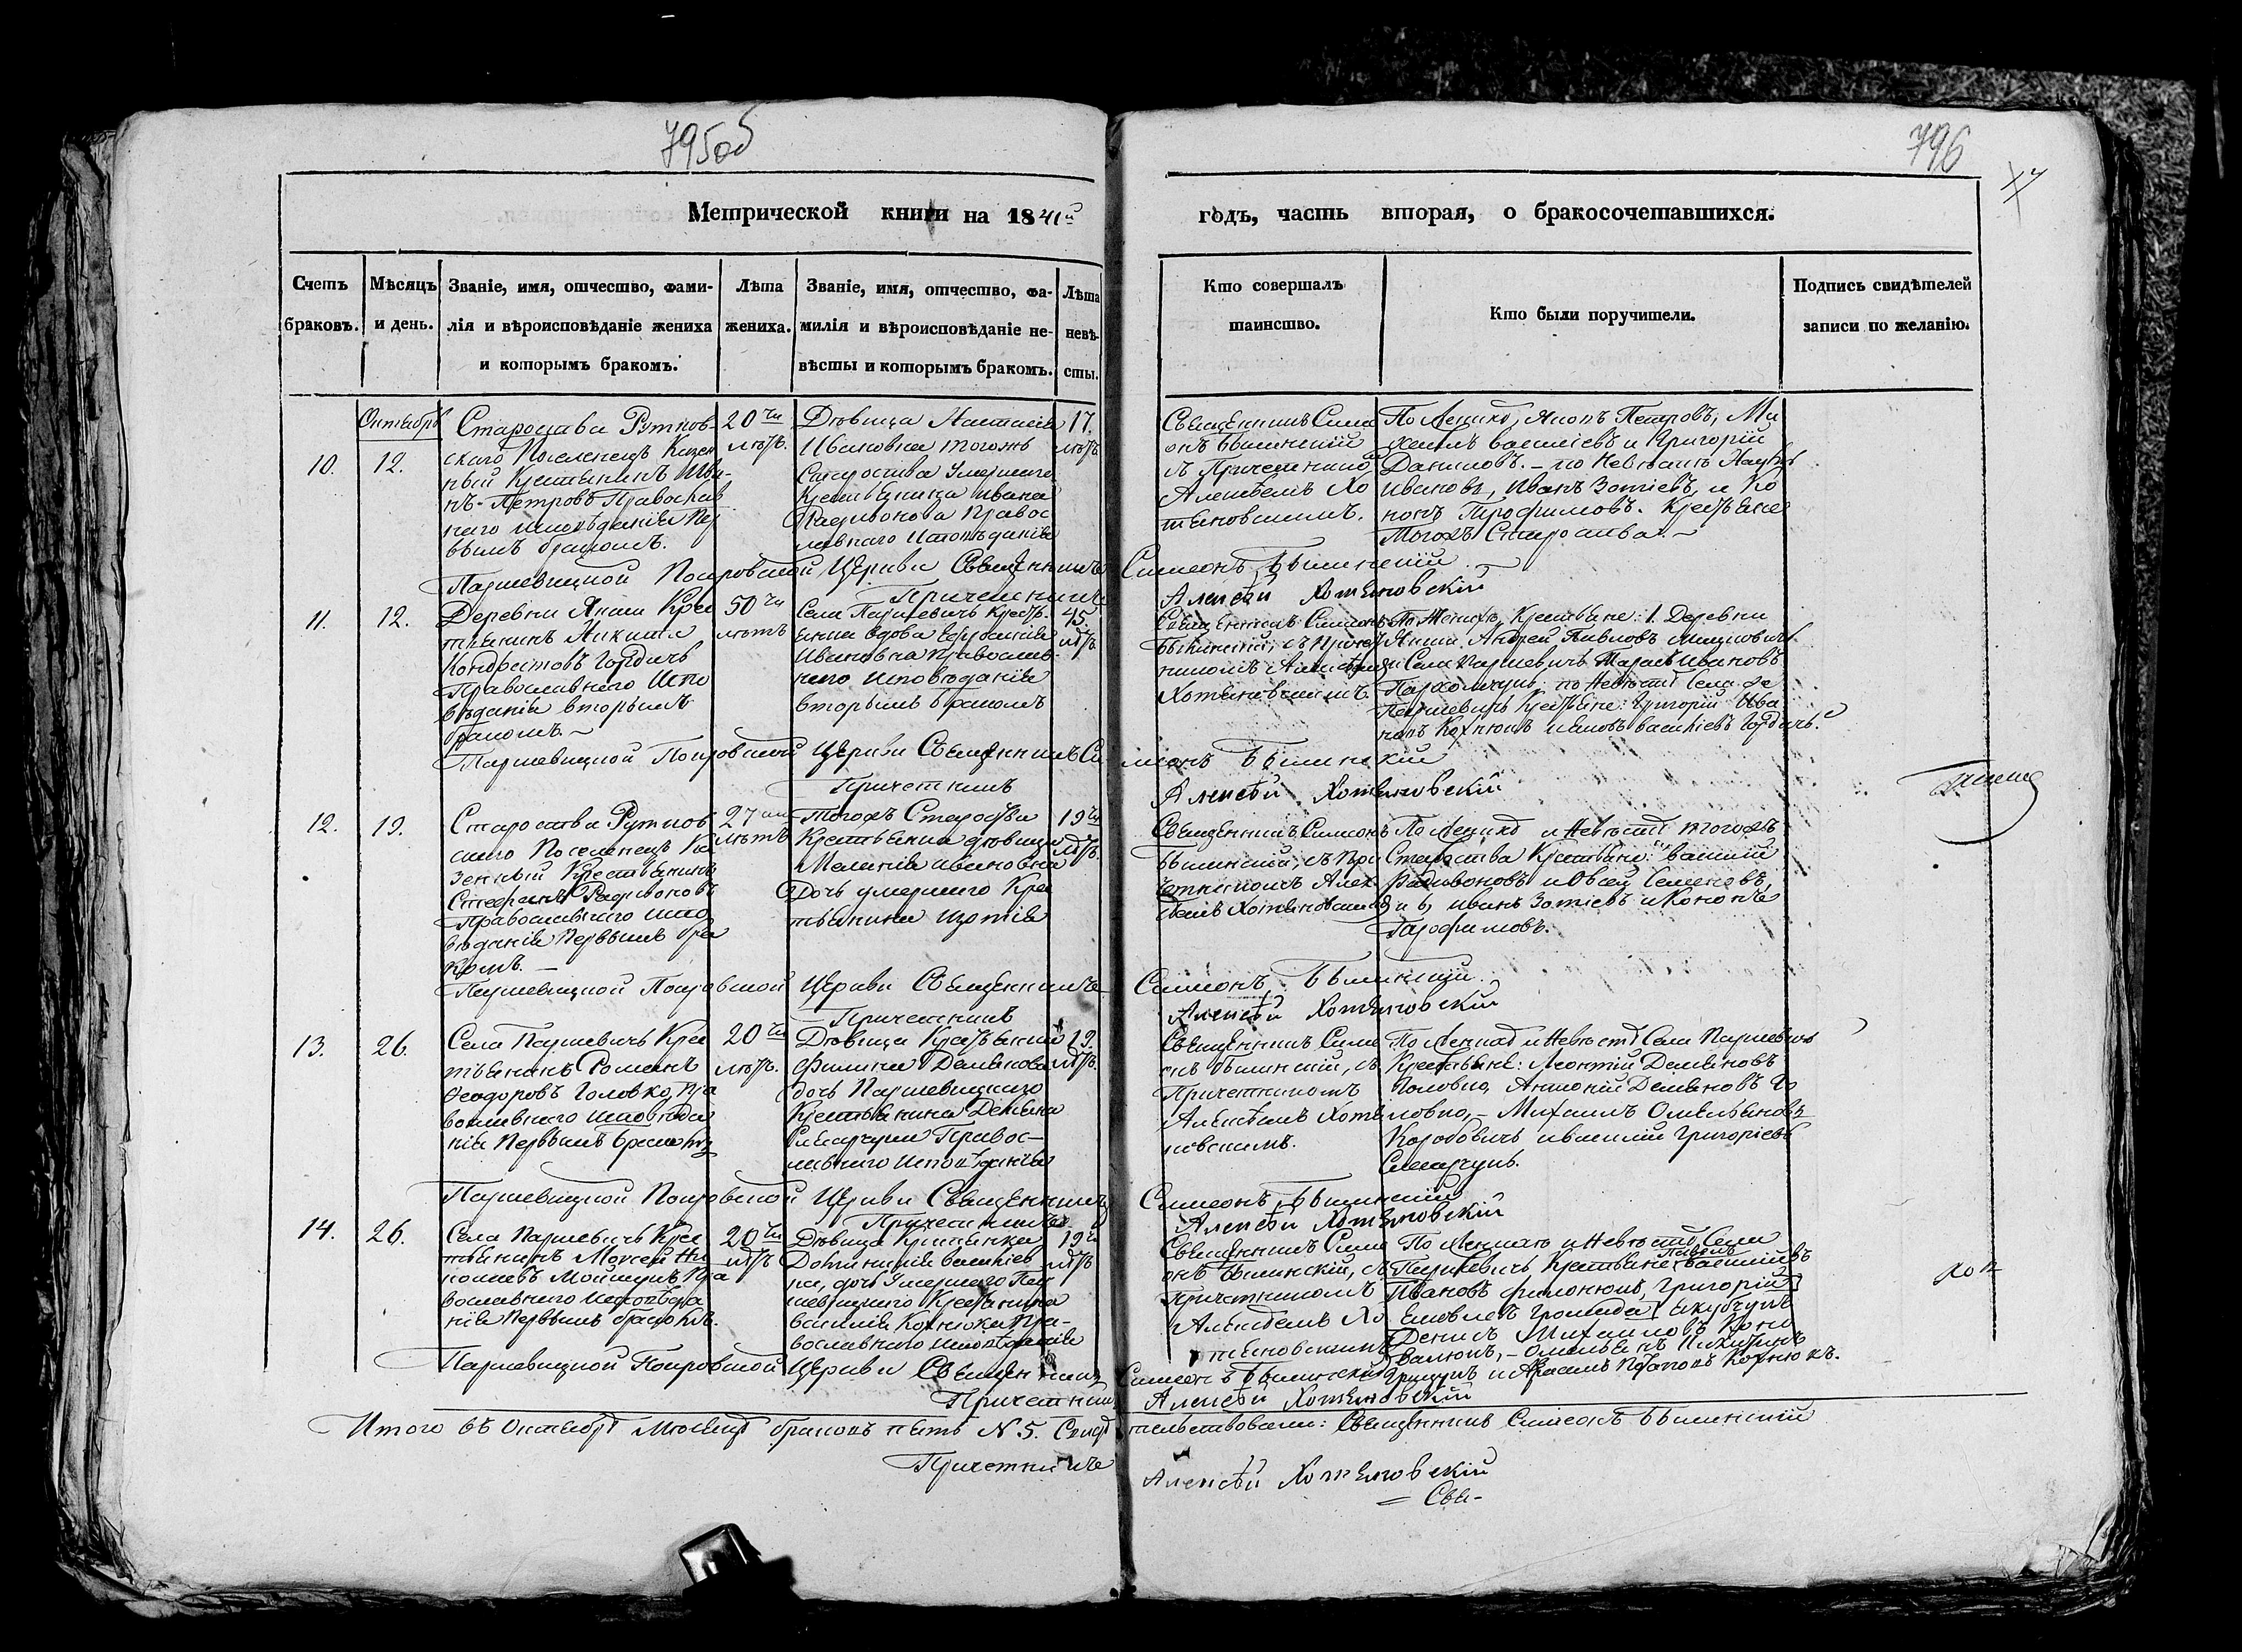 795об
796
Метрической книги на 1841й
годъ, часть вторая, о бракосочетавшихся.
Счетъ браковъ.
Мѣсяцъ и день.
Званіе, имя, отчество, фами-
лія и вѣроисповѣданіе жениха
и которымъ бракомъ.
Лѣта
жениха.
Званіе, имя, отчество, фа-
милія и вѣроисповѣданіе не-
вѣсты и которымъ бракомъ.
Лѣта
невѣ-
сты.
Кто совершалъ
таинство.
Кто были поручители.
Подпись свидѣтелей
записи по желанію.
10.
Октябрь
12.
Староства Рутков-
скаго Поселенецъ Казен
ный Крестьянинъ
Петровъ Православ
наго исповѣданія Пер
вымъ бракомъ.
20ти
лѣтъ.
Дѣвица Настасія
Ивановна тогожъ
Староства Умершаго
Крестьянина Ивана
Радивонова Правос
лавнаго Исповѣданія
17.
лѣтъ
Священникъ Симе
онъ Былинскій
съ Причетникомъ
Алексѣемъ Хо
тяновскимъ.
По Женихѣ, Петровъ, Ми
хаилъ Василіевъ и Григорій
Даниловъ. - по Невѣстѣ
Ивановъ, Иванъ Зотіевъ, и Ко
нонъ Трофимовъ. Крестьяне
Тогожъ Староства. ~
Паршевицкой Покровской Церкви Священникъ Симеонъ Былинскій
Причетникъ Алексѣй Хотяновскій
11.
12.
Деревни Крес
тьянинъ Никита
Кондратовъ Гордичъ
Православнаго Испо
вѣданія вторымъ
бракомъ. ~
50ти
лѣтъ
Села Паршевичъ Крестья
янка вдова
Ивановна Православ-
наго Исповѣданія
вторымъ бракомъ
45.
лѣтъ
Священникъ Симеонъ
Былинскій, съ Причет
никомъ Алексѣемъ
Хотяновскимъ.
По Женихѣ, Крестьяне: 1. Деревни
Андрей Павловъ
и Села Паршевичъ Тарасъ Ивановъ
Пархомчукъ, по Невѣстѣ Села
Паршевичъ Крестьяне: Григорій Ива
новъ Кохнюкъ и Василіевъ Гордичъ.
Паршевицкой Покровской Церкви Священникъ Симеонъ Былинскій
Причетникъ Алексѣй Хотяновскій
12.
19.
Староства Рутков
скаго Поселенецъ Ка
зенный Крестьянинъ
Стефанъ Радивоновъ
Православнаго испо
вѣданія Первымъ бра
комъ. -
27ми
лѣтъ
Тогожъ Староства
Крестьянка дѣвица
Меланія Ивановна
Дочь умершаго Крес
тьянина Изотія
19ти
лѣтъ.
Священникъ Симеонъ
Былинскій, съ При
четникомъ Алек
сѣемъ Хотяновскимъ
По Женихѣ и Невѣстѣ тогожъ
Староства Крестьяне: Василій
Радивоновъ и Овсей Семеновъ,
Иванъ Зотіевъ и Кононъ
Трофимовъ.
Паршевицкой Покровской Церкви Священникъ Симеонъ Былинскій
Причетникъ Алексѣй Хотяновскій
13.
26.
Села Паршевичъ Крес
тьянинъ Романъ
Ѳеодоровъ Головко, Пра
вославнаго Исповѣда
нія Первымъ бракомъ
20ти
лѣтъ.
Дѣвица Крестьянка
Демянова
дочь Паршевицкаго
Крестьянина Демьяна
Слесарчука Правос-
лавнаго Исповѣданія
19.
лѣтъ.
Священникъ Симе
онъ Былинскій, съ
Причетникомъ
Алексѣемъ Хотя
новскимъ.
По Женихѣ и Невѣстѣ Села Паршевичъ
Крестьяне: Леонтій Демьяновъ
Головко, Антоній Демьяновъ Го
ловко, - Михаилъ Омельяновъ
Коробовичъ и Василій Григоріевъ
Слесарчукъ.
Паршевицкой Покровской Церкви Священникъ Симеонъ Былинскій
Причетникъ Алексѣй Хотяновскій
14.
26.
Села Паршевичъ Крес
тьянинъ Моисей Ни
колаевъ Пра
вославнаго Исповѣда
нія Первымъ бракомъ.
20ти
лѣтъ
Дѣвица Крестьянка
Доминикія Василіев
на, дочь Умершаго Пар
шевицкаго Крестьянина
Василія Кохнюка Пра-
вославнаго Исповѣданія
19ти
лѣтъ
Священникъ Симе
онъ Былинскій, съ
Причетникомъ
Алексѣемъ Хо
тяновскимъ
По Женихѣ и Невѣстѣ Села
Паршевичъ Крестьяне: Василій
Ивановъ Филонюкъ, Григорій
Яковлевъ Громада
Денисъ Михаиловъ
Кохнюкъ.
Паршевицкой Покровской Церкви Священникъ Симеонъ Былинскій
Причетникъ Алексѣй Хотяновскій
Итого въ Октябрѣ Месяцѣ браковъ пять N 5. Свидѣтельствовали: Священникъ Симеонъ Былинскій
Причетникъ Алексѣй Хотяновскій
= Свя-